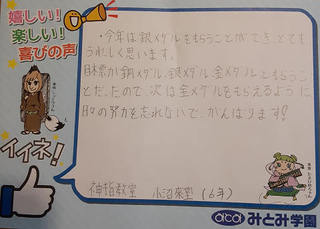 嬉しい!
楽しい!
喜びの声
・今年は銀メダルをもらうことができてとても
うれしく思います。
目標が銅メダル、銀メダル、金メダルともらうこ
とだったので、次は金メダルをもらえるように
日々の努力を忘れないで、がんばります!
イイネ!
神指教室 小沼來堂(6年)
みとみ学園